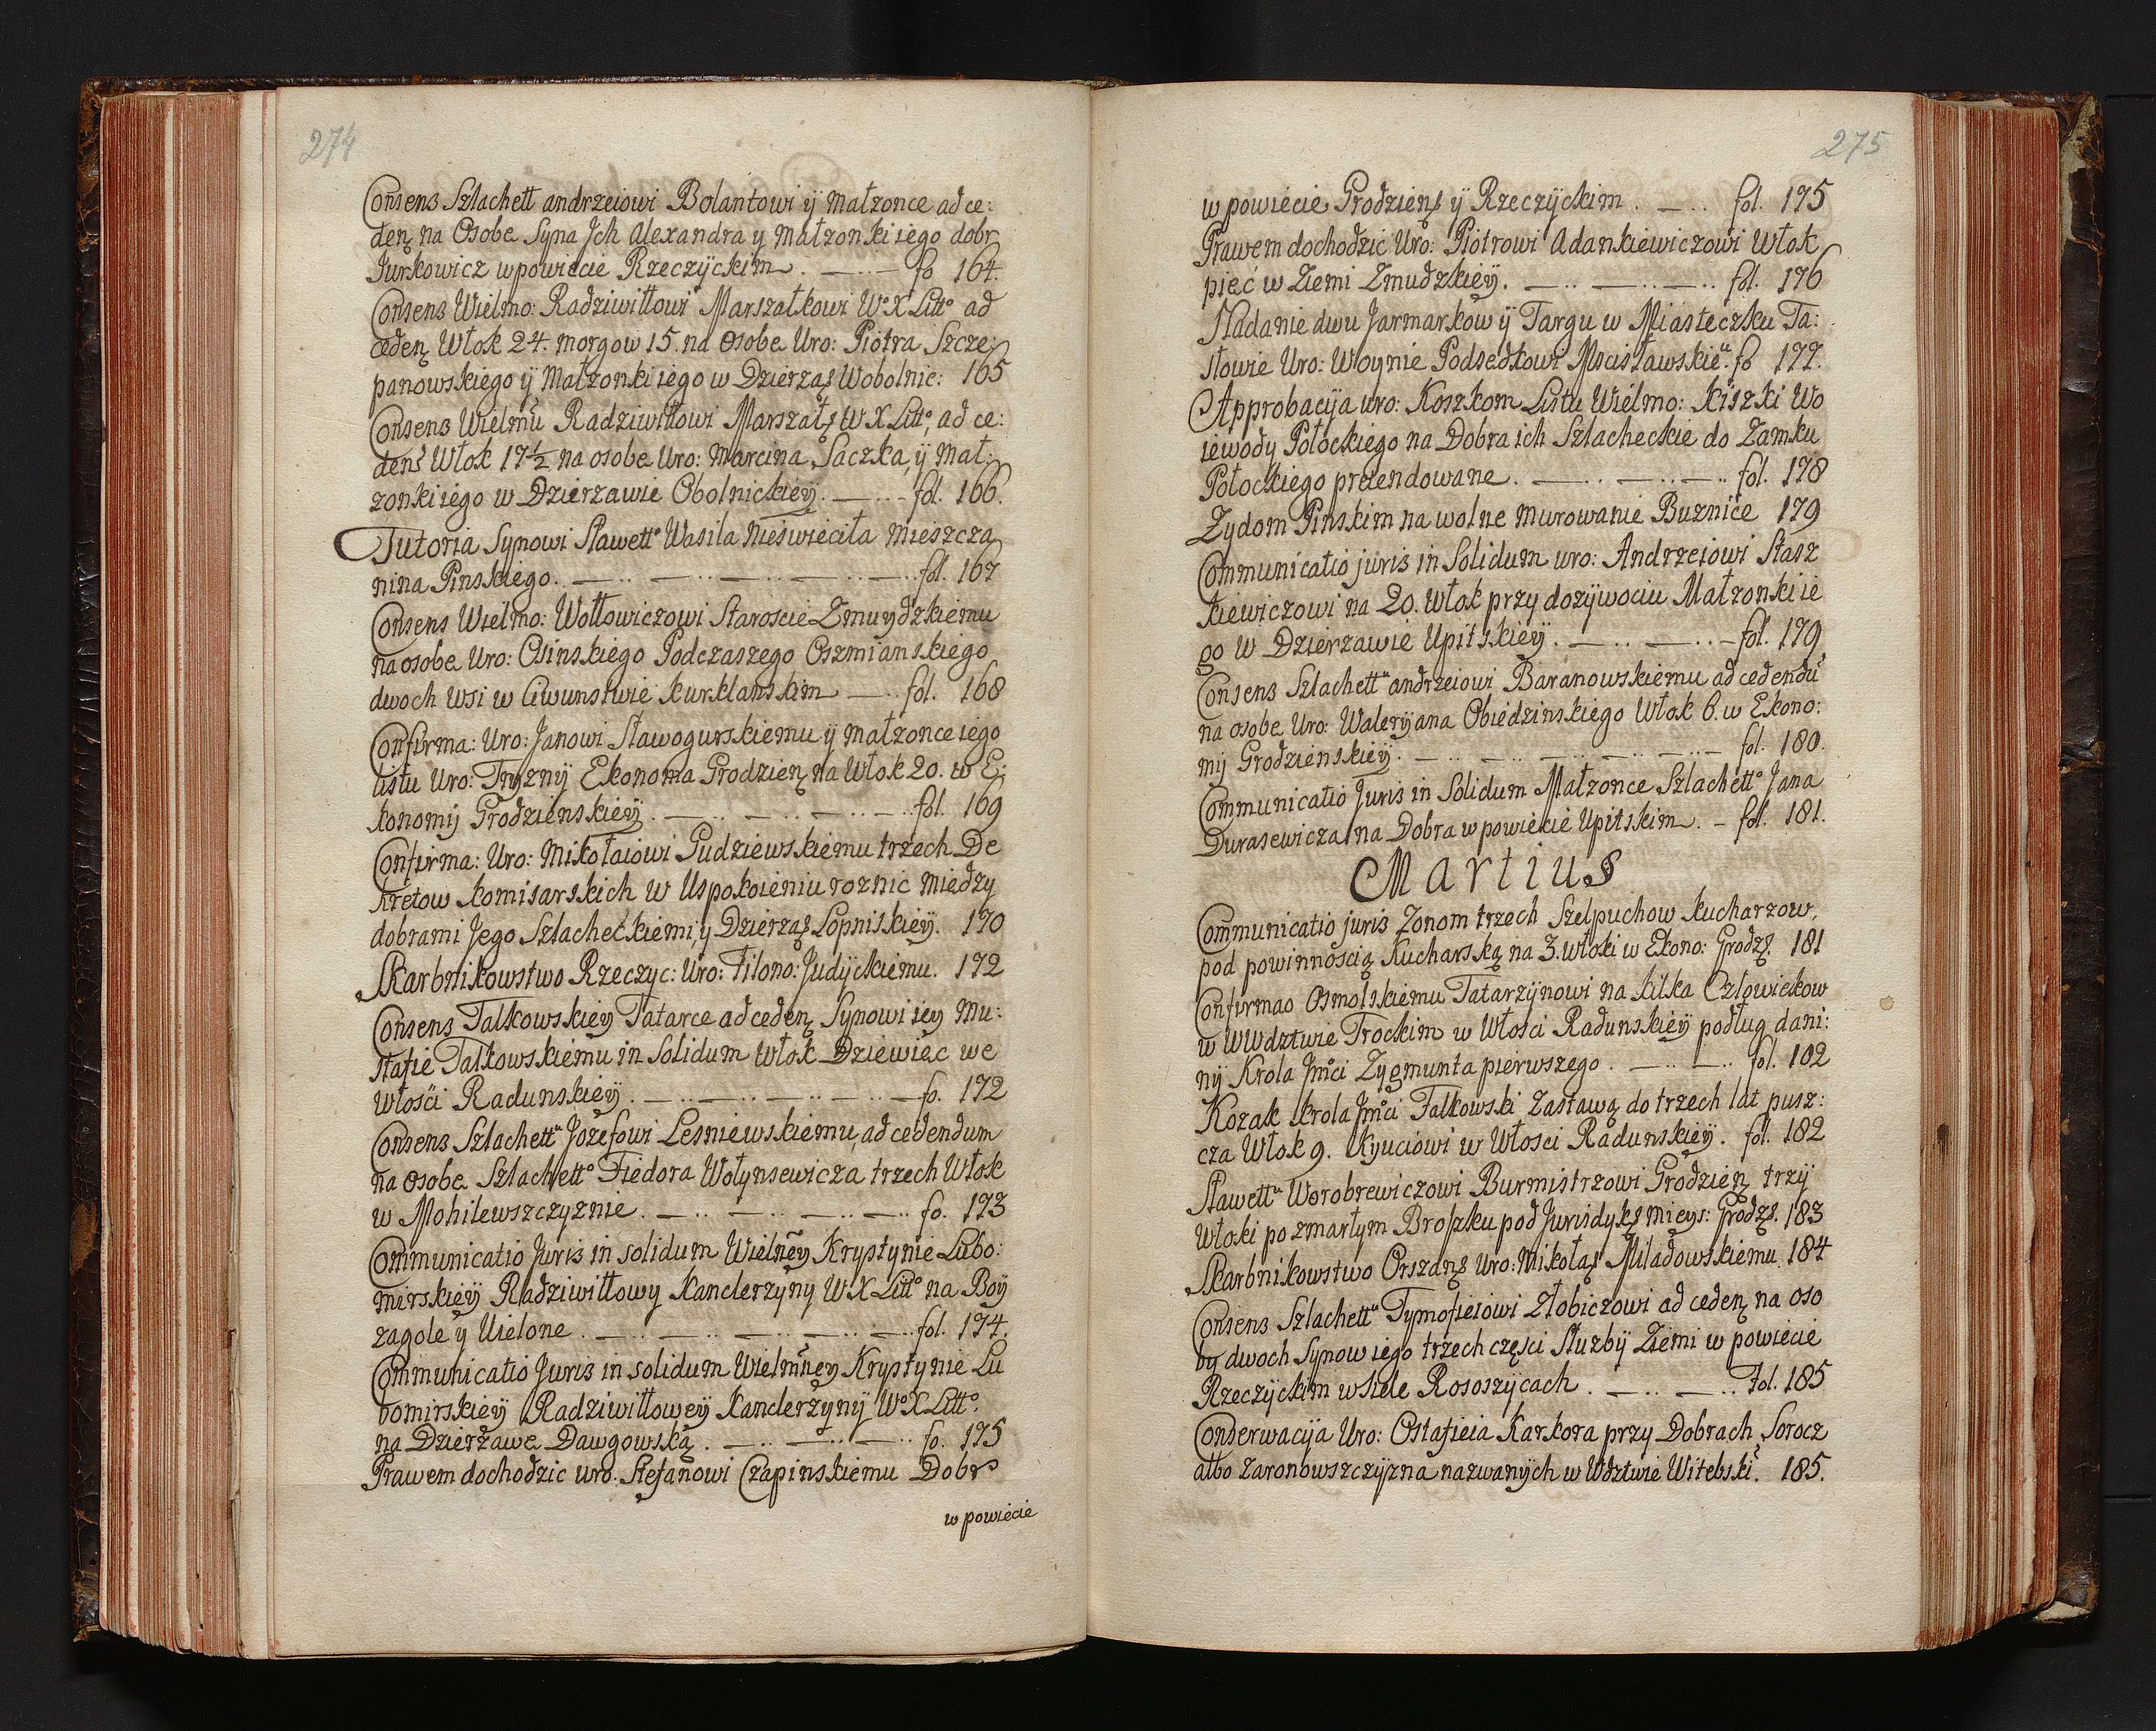 274
Consens Szlachett andrzeiowi Bolantowi ÿ małzonce ad ce:
den̨ na Osobe Syna Jch Alexandra y małzonki iego dobr
Jurkowicz w powiecie Rzeczÿckim . — ·· — fo 164.
Consens Wielmo: Radziwiłłowi Marszałkowi Wº X Littº ad
ceden̨ Włok 24. morgow 15. na Osobe Uro: Piotra Szcze:
panowskiego ÿ Małzonki iego w Dzierzaȩ Wobolnic: 165
Consens Wielmu Radziwiłłowi Marszałȩ W X Littº, ad ce:
dens Włok 17½ na osobe Uro: Marcina Saczka, ÿ Mał:
zonki iego w Dzierzawie Obolnickieÿ. — ·· — fol. 166.
Tutoria Synowi Sławettº Wasila Nieswieciła Mieszcza
nina Pinskiego. — ·· — ·· — ·· — ·· — fol. 167
Consens Wielmo: Wołłowiczowi Staroscie Zmuydzkiemu
na osobe Uro: Osinskiego Podczaszego Oszmianskiego
dwoch wsi w Ciwunstwie Kurklanskim — ·· fol. 168
Confirma: Uro: Janowi Sławogurskiemu ÿ małzonce iego
listu Uro: Tryznÿ Ekonoma Grodzien̨ na Włok 20. w E:
konomÿ Grodzienskieÿ . — ·· — ·· — ·· — fol. 169
Confirma: Uro: Mikołaiowi Gudziewskiemu trzech De
kretow komisarskich w Uspokoieniu roznic miedzy
dobrami Jego Szlacheckiemi, y Dzierzaȩ Łopniskieÿ. 170
Skarbnikowstwo Rzeczyc: Uro: Filono: Judÿckiemu. 172
Consens Talkowskiey Tatarce ad ceden̨ Synowi iey Mu:
stafie Talkowskiemu in Solidum Włok Dziewiec we
włosci Radunskieÿ . — ·· — ·· — ·· — ·· — fo. 172
Consens Szlachettu Jozefowi Lesniewskiemu, ad cedendum
na osobe Szlachettº Fiedora Wołynsewicza trzech Włok
w Mohilewszczyznie . — ·· — ·· — ·· — fo. 173
Communicatio Juris in solidum Wielney Krystynie Lubo:
mirskieÿ Radziwiłłowy Kanclerzyny W X Littº na Boÿ
zagole ÿ Uielone . — ·· — ·· — ·· — ·· — fol. 174.
Communicatio Juris in solidum Wielmney Krystynie Lu
bomirskieÿ Radziwiłłoweÿ Kanclerzynÿ Wº X Littº.
na Dzierzawe Dawgowską . — ·· — ·· — ·· fo. 175
Prawem dochodzic uro. Stefanowi Czapinskiemu Dobr
w powiecie
275
w powiecie Grodzienȩ ÿ Rzeczÿckim . — ·· fol. 175
Prawem dochodzic Uro: Piotrowi Adankiewiczowi Włok
piec w Ziemi Zmudzkieÿ. — ·· — ·· — ·· fol. 176
Nadanie dwu Jarmarkow ÿ Targu w Miasteczku Ta:
stowie Uro: Woynie Podsedkowi Mscisławskieu. fo 177.
Approbacÿa uro: Koszkom Listu Wielmo: Kiszki Wo
iewody Połockiego na Dobra ich Szlacheckie do Zamku
Połockiego pretendowane . — ·· — ·· — ·· fol. 178
Zydom Pinskim na wolne murowanie Buznice 179
Communicatio juris in Solidum uro: Andrzeiowi Stasz
kiewiczowi na 20. włok przy dozywociu Małzonki ie
go w Dzierzawie Upitskieÿ. — ·· — ·· — fol. 179
Consens Szlachettu andrzeiowi Baranowskiemu ad cedendū
na osobe Uro: Walerÿana Obiedzinskiego Włok 6. w Ekono:
mÿ Grodzienskieÿ. — ·· — ·· — ·· — fol. 180.
Communicatio Juris in Solidum Małzonce Szlachettº Jana
Durasewicza na Dobra w powiecie Upitskim. — fol. 181.
Martius
Communicatio juris Zonom trzech Szelpuchow Kucharzow,
pod powinnoscią Kucharską na 3. włoki w Ekono: Grodzȩ. 181
Confirmao Osmolskiemu Tatarzÿnowi na kilka Człowiekow
w Wwdztwie Trockim w Włosci Radunskieÿ podług dani:
nÿ Krola Jmci Zygmunta pierwszego . — ·· — ·· fol. 182
Kozak krola Jmci Talkowski Zastawą do trzech lat pusz:
cza Włok 9. Kyuciowi w Włosci Radunskieÿ. fol. 182
Sławettu Worobrewiczowi Burmistrzowi Grodzien̨ trzÿ
Włoki po zmarłym Broszku pod Jurisdykȩ mieys: Grodzȩ. 183
Skarbnikowstwo Orszanȩ Uro: Mikołaȩ Miładowskiemu. 184
Consens Szlachettu Tymofieiowi Złobiczowi ad ceden̨ na oso
by dwoch Synow iego trzech części Służbÿ Ziemi w powiecie
Rzeczÿckim w siele Rososzÿcach . — ·· — ·· Fol. 185
Conserwacÿa Uro: Ostafieia Karkora przy Dobrach Sorocz
albo Zaronowszczÿzna nazwanÿch w Wdztwie Witebski. 185.